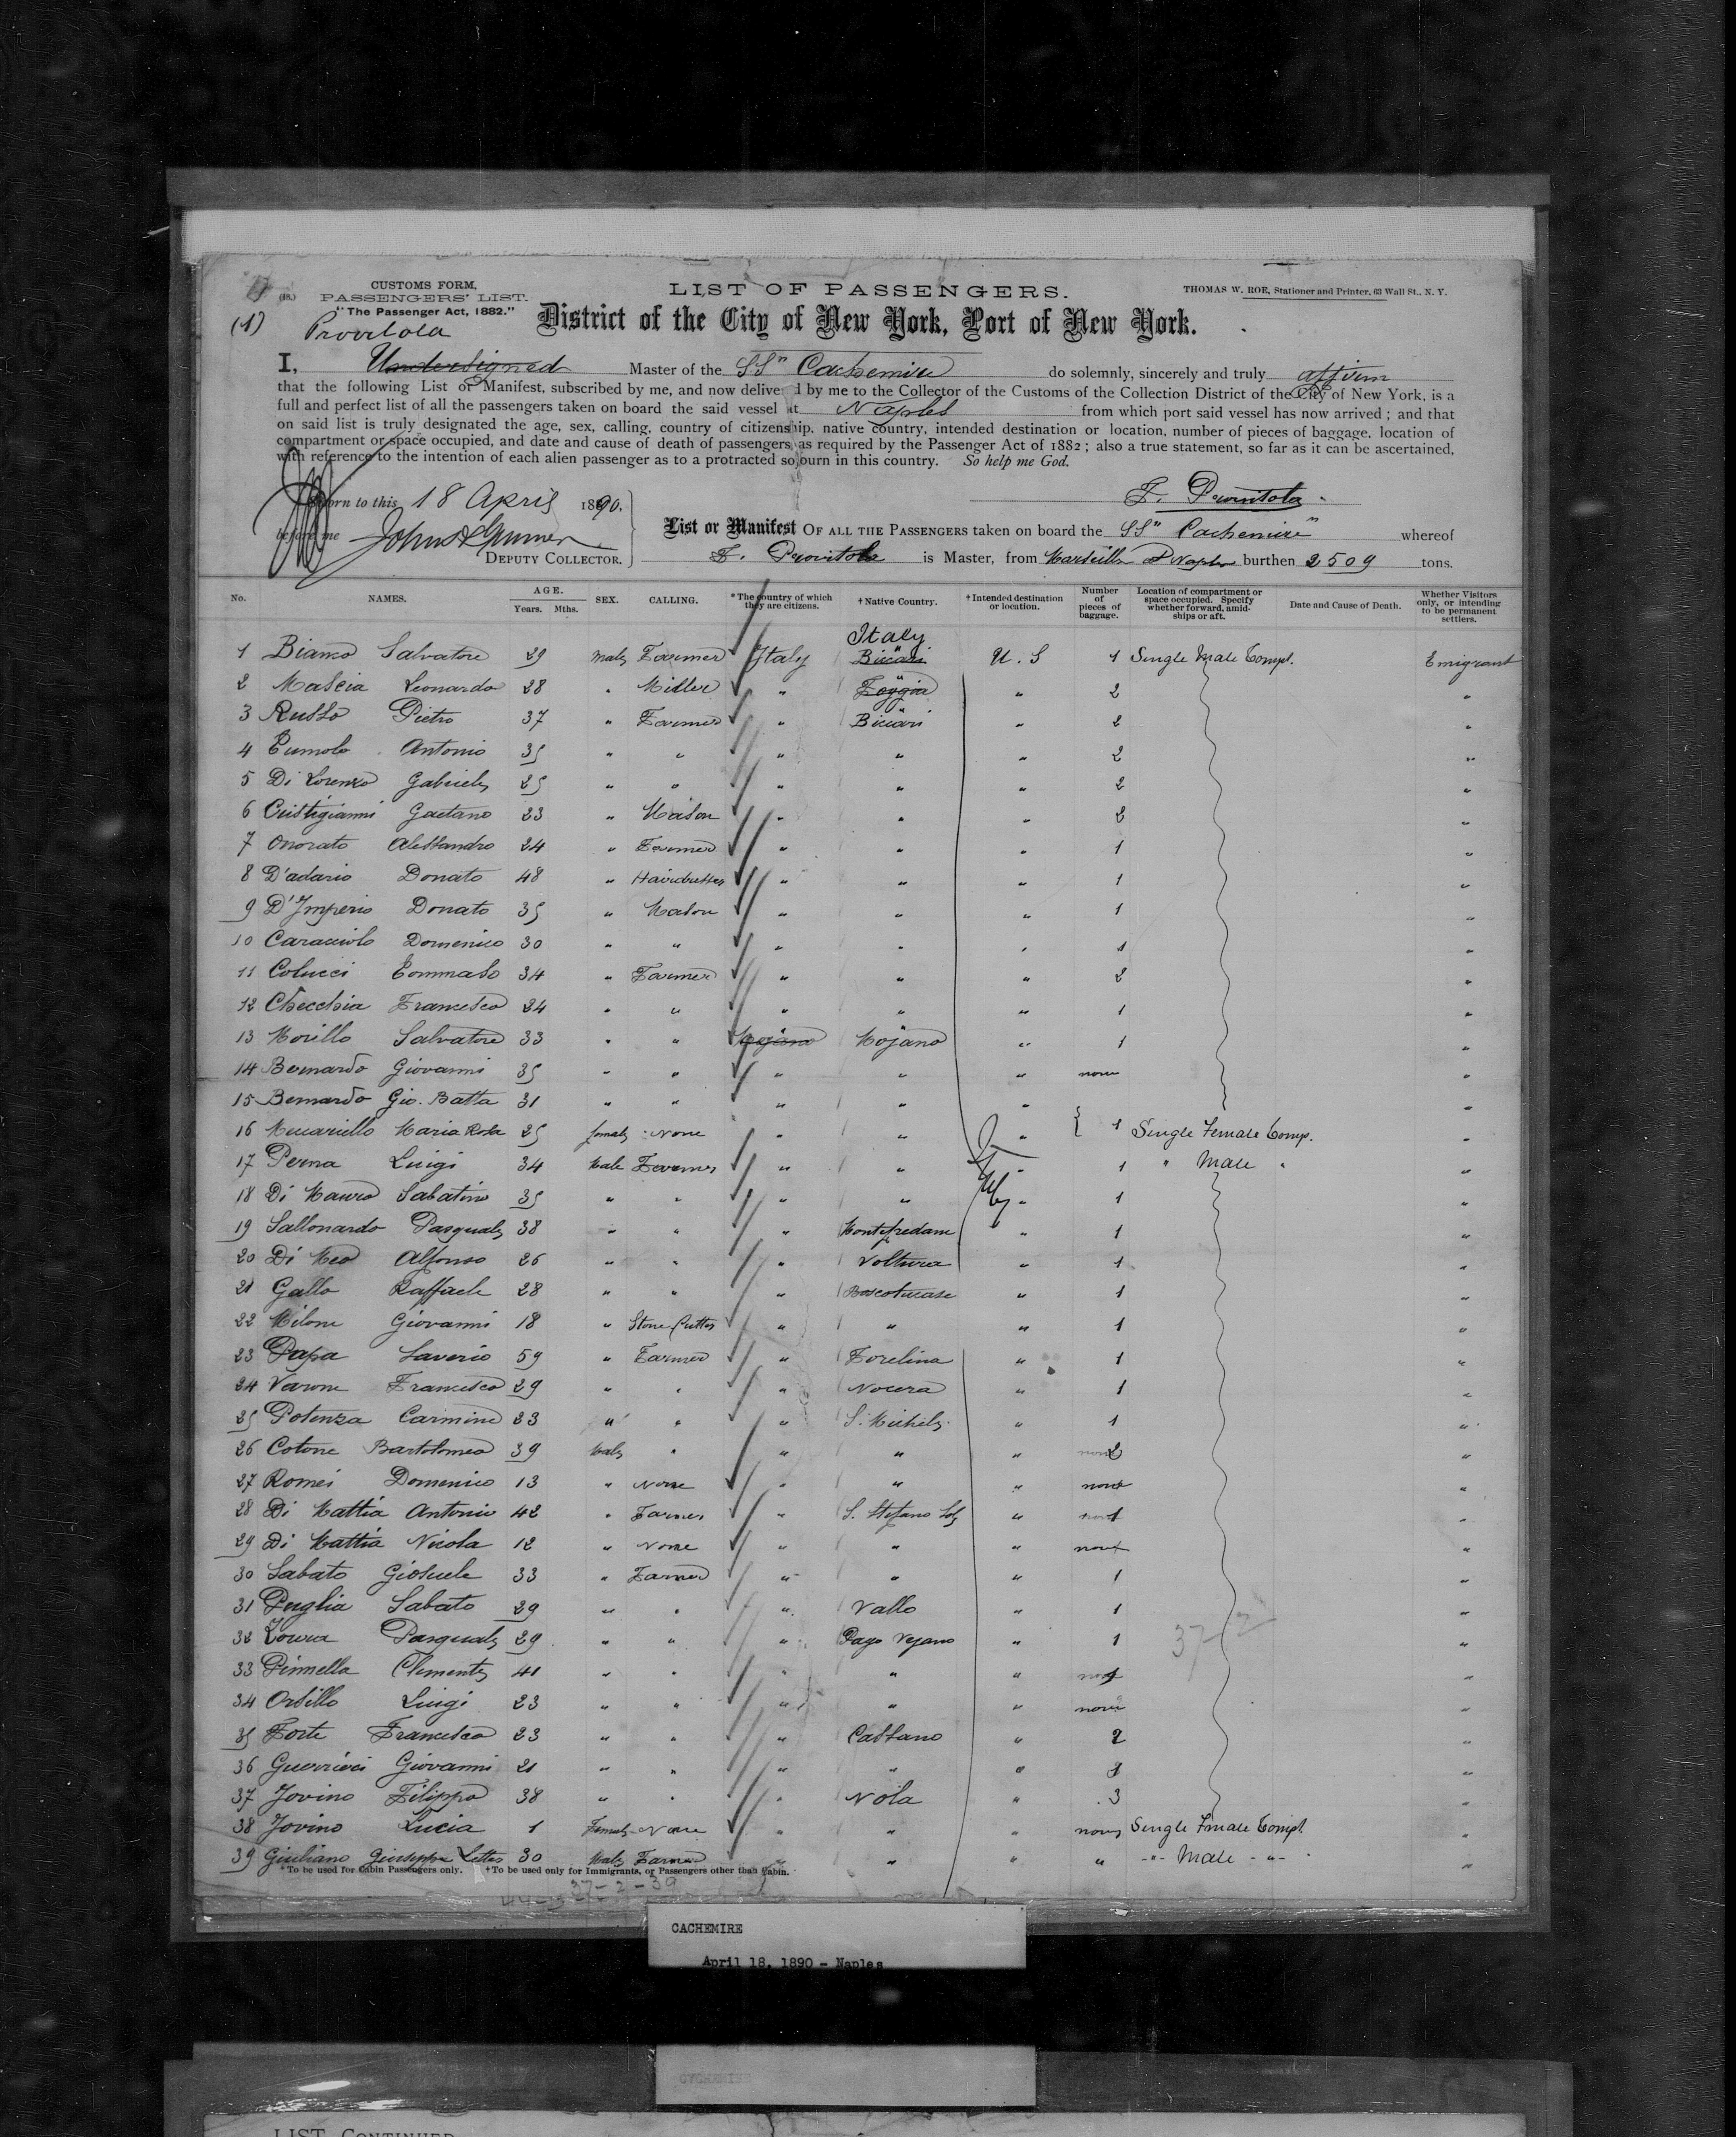 (18.) CUSTOMS FORM,
PASSENGERS' LIST.
"The Passenger Act, 1882."
LIST OF PASSENGERS.
THOMAS W. ROE, Stationer and Printer, 63 Wall St., N. Y.
(1) Provitola
District of the City of New York, Port of New York.
I, Undersigned Master of the SS" Cachemire do solemnly, sincerely and truly affirm
that the following List or Manifest, subscribed by me, and now delivered by me to the Collector of the Customs of the Collection District of the City of New York, is a
full and perfect list of all the passengers taken on board the said vessel at Naples from which port said vessel has now arrived; and that
on said list is truly designated the age, sex, calling, country of citizenship, native country, intended destination or location, number of pieces of baggage, location of
compartment or space occupied, and date and cause of death of passengers as required by the Passenger Act of 1882; also a true statement, so far as it can be ascertained,
with reference to the intention of each alien passenger as to a protracted sojourn in this country. So help me God.
F. Provitola
Sworn to this 18 April 1890.
before me
DEPUTY COLLECTOR.
List or Manifest OF ALL THE PASSENGERS taken on board the SS" Cachemire" whereof
F. Provitola is Master, from Marseille & Naples burthen 2509 tons.
No. NAMES. AGE. Years. Mths. SEX. CALLING. *The country of which they are citizens. †Native Country. †Intended destination or location. Number of pieces of baggage. Location of compartment or space occupied. Specify whether forward, amidships or aft. Date and Cause of Death. Whether Visitors only, or intending to be permanent settlers.
Italy
1 Bianco Salvatore 29 Male Farmer Italy Biccari U. S 1 Single Male Compt. Emigrant
2 Mascia Leonardo 28 " Miller " Foggia " 2 "
3 Russo Pietro 37 " Farmer " Biccari " 2 "
4 Antonio 35 " " " " " 2 "
5 Di Lorenzo Gabriele 25 " " " " " 2 "
6 Cristigianni Gaetano 23 " Mason " " " 2 "
7 Onorato Alessandro 24 " Farmer " " " 1 "
8 D'adario Donato 48 " Hairdresser " " " 1 "
9 D'Imperio Donato 35 " Mason " " " 1 "
10 Caracciolo Domenico 30 " " " " " 1 "
11 Colucci Tommaso 34 " Farmer " " " 2 "
12 Checchia Francesco 24 " " " " " 1 "
13 Morillo Salvatore 33 " " Mojano Mojano " 1 "
14 Bernardo Giovanni 35 " " " " " none "
15 Bernardo Gio. Batta 31 " " " " " "
16 Meccariello Maria Rosa 25 female None " " " 1 Single Female Comp. "
17 Perna Luigi 34 Male Farmer " " " 1 " Male " "
18 Di Mauro Sabatino 35 " " " " " 1 "
19 Sallonardo Pasquale 38 " " " Montefredane " 1 "
20 Di Meo Alfonso 26 " " " Voltura " 1 "
21 Gallo Raffaele 28 " " " Boscotrecase " 1 "
22 Milone Giovanni 18 " Stone Cutter " " " 1 "
23 Papa Saverio 59 " Farmer " Forelina " 1 "
24 Varone Francesco 29 " " " Nocera " 1 "
25 Potenza Carmine 23 " " " S. Michele " 1 "
26 Cotone Bartolomeo 39 Male " " " " 2 "
27 Romei Domenico 13 " None " " " none "
28 Di Mattia Antonio 42 " Farmer " S. Stefano Sole " 1 "
29 Di Mattia Nicola 12 " None " " " none "
30 Sabato Giosuele 33 " Farmer " " " 1 "
31 Puglia Sabato 29 " " " Vallo " 1 "
32 Pasquale 29 " " " Pago Vejano " 1 "
33 Pinnella Clemente 41 " " " " " "
34 Orsillo Luigi 23 " " " " " none "
35 Forte Francesco 23 " " " Cassano " 2 "
36 Guerrieri Giovanni 21 " " " " " 1 "
37 Jovino Filippo 38 " " " Nola " 3 "
38 Jovino Lucia 1 Female None " " " none Single Female Compt. "
39 Giuliano Giuseppe 30 Male Farmer " " " " -"- Male -"- "
*To be used for Cabin Passengers only. †To be used only for Immigrants, or Passengers other than Cabin.
37-2-39
CACHEMIRE
April 18, 1890 - Naples
CACHEMIRE
LIST CONTINUED